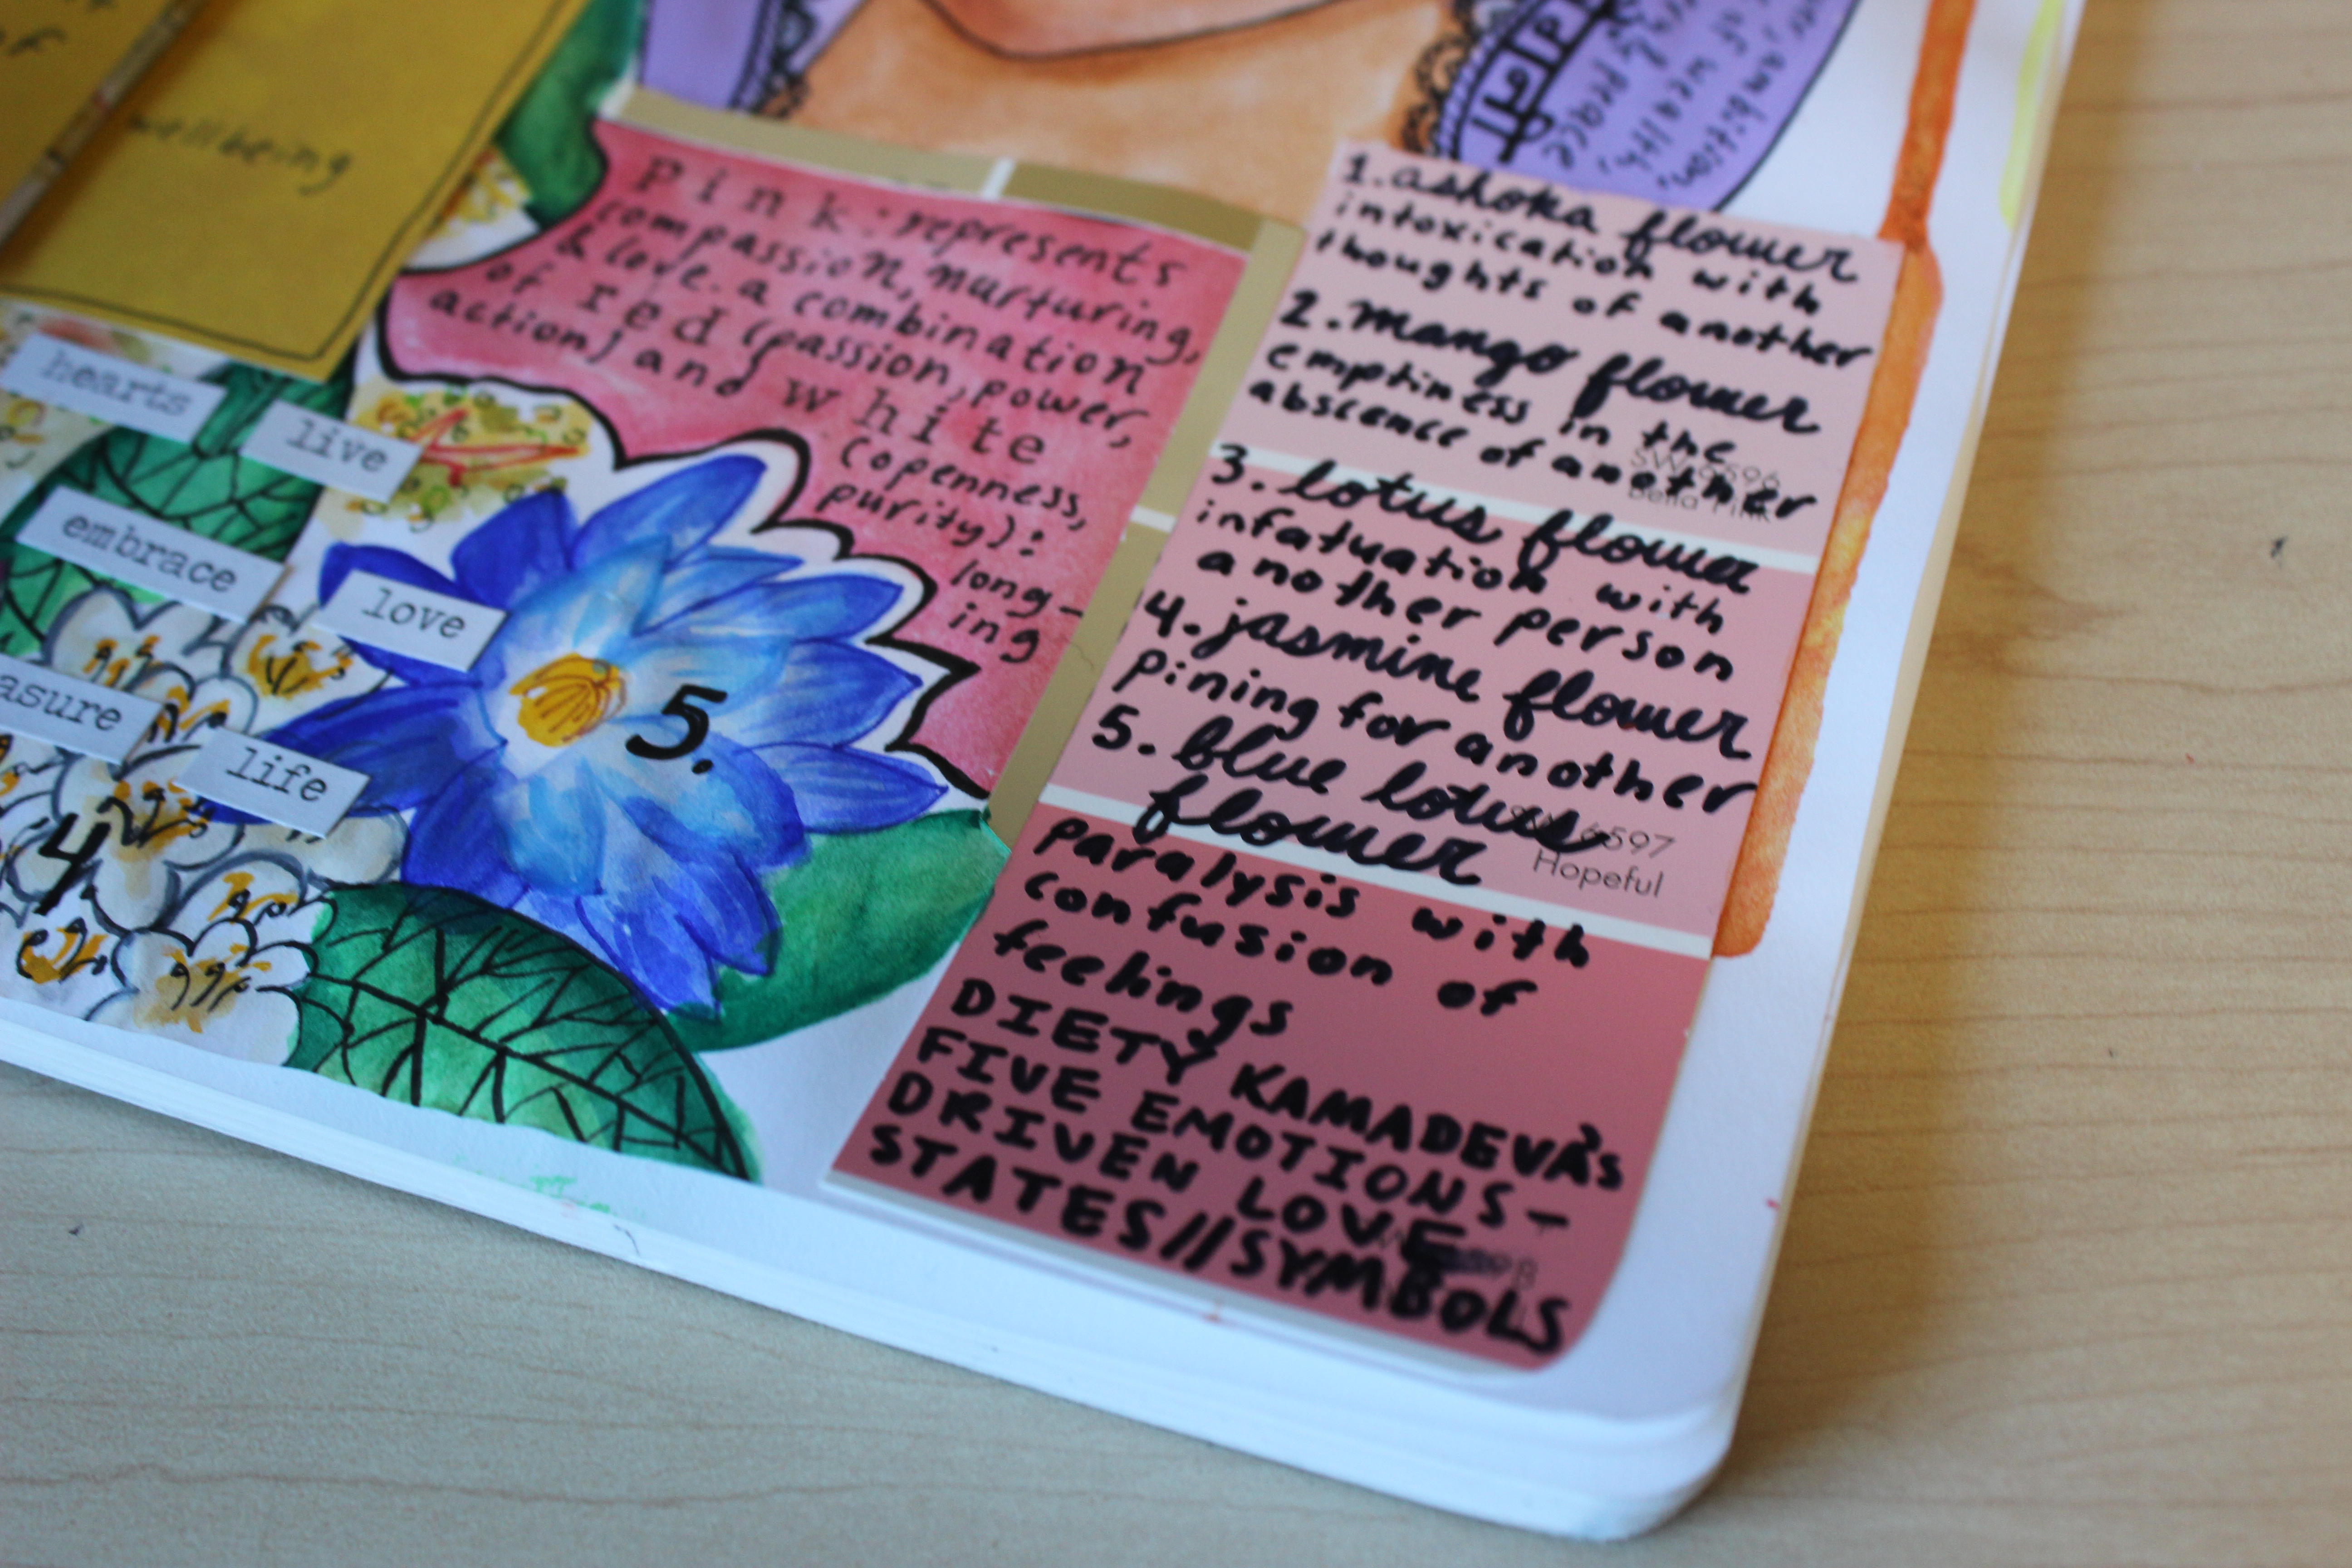 of
wellbeing
hearts
live
embrace
love
asure
life
4
5.
pink: represents
compassion, nurturing,
& love. a combination
of red (passion, power,
action) and white
(openness,
purity):
long-
ing
peace
wealth,
ambition,
1. ashoka flower
intoxication with
thoughts of another
2. mango flower
emptiness in the
abscence of another
SW 6596
Bella Pink
3. lotus flower
infatuation with
another person
4. jasmine flower
pining for another
5. blue lotus
flower
6597
Hopeful
paralysis with
confusion of
feelings
DIETY KAMADEVA's
FIVE EMOTIONS-
DRIVEN LOVE
STATES//SYMBOLS